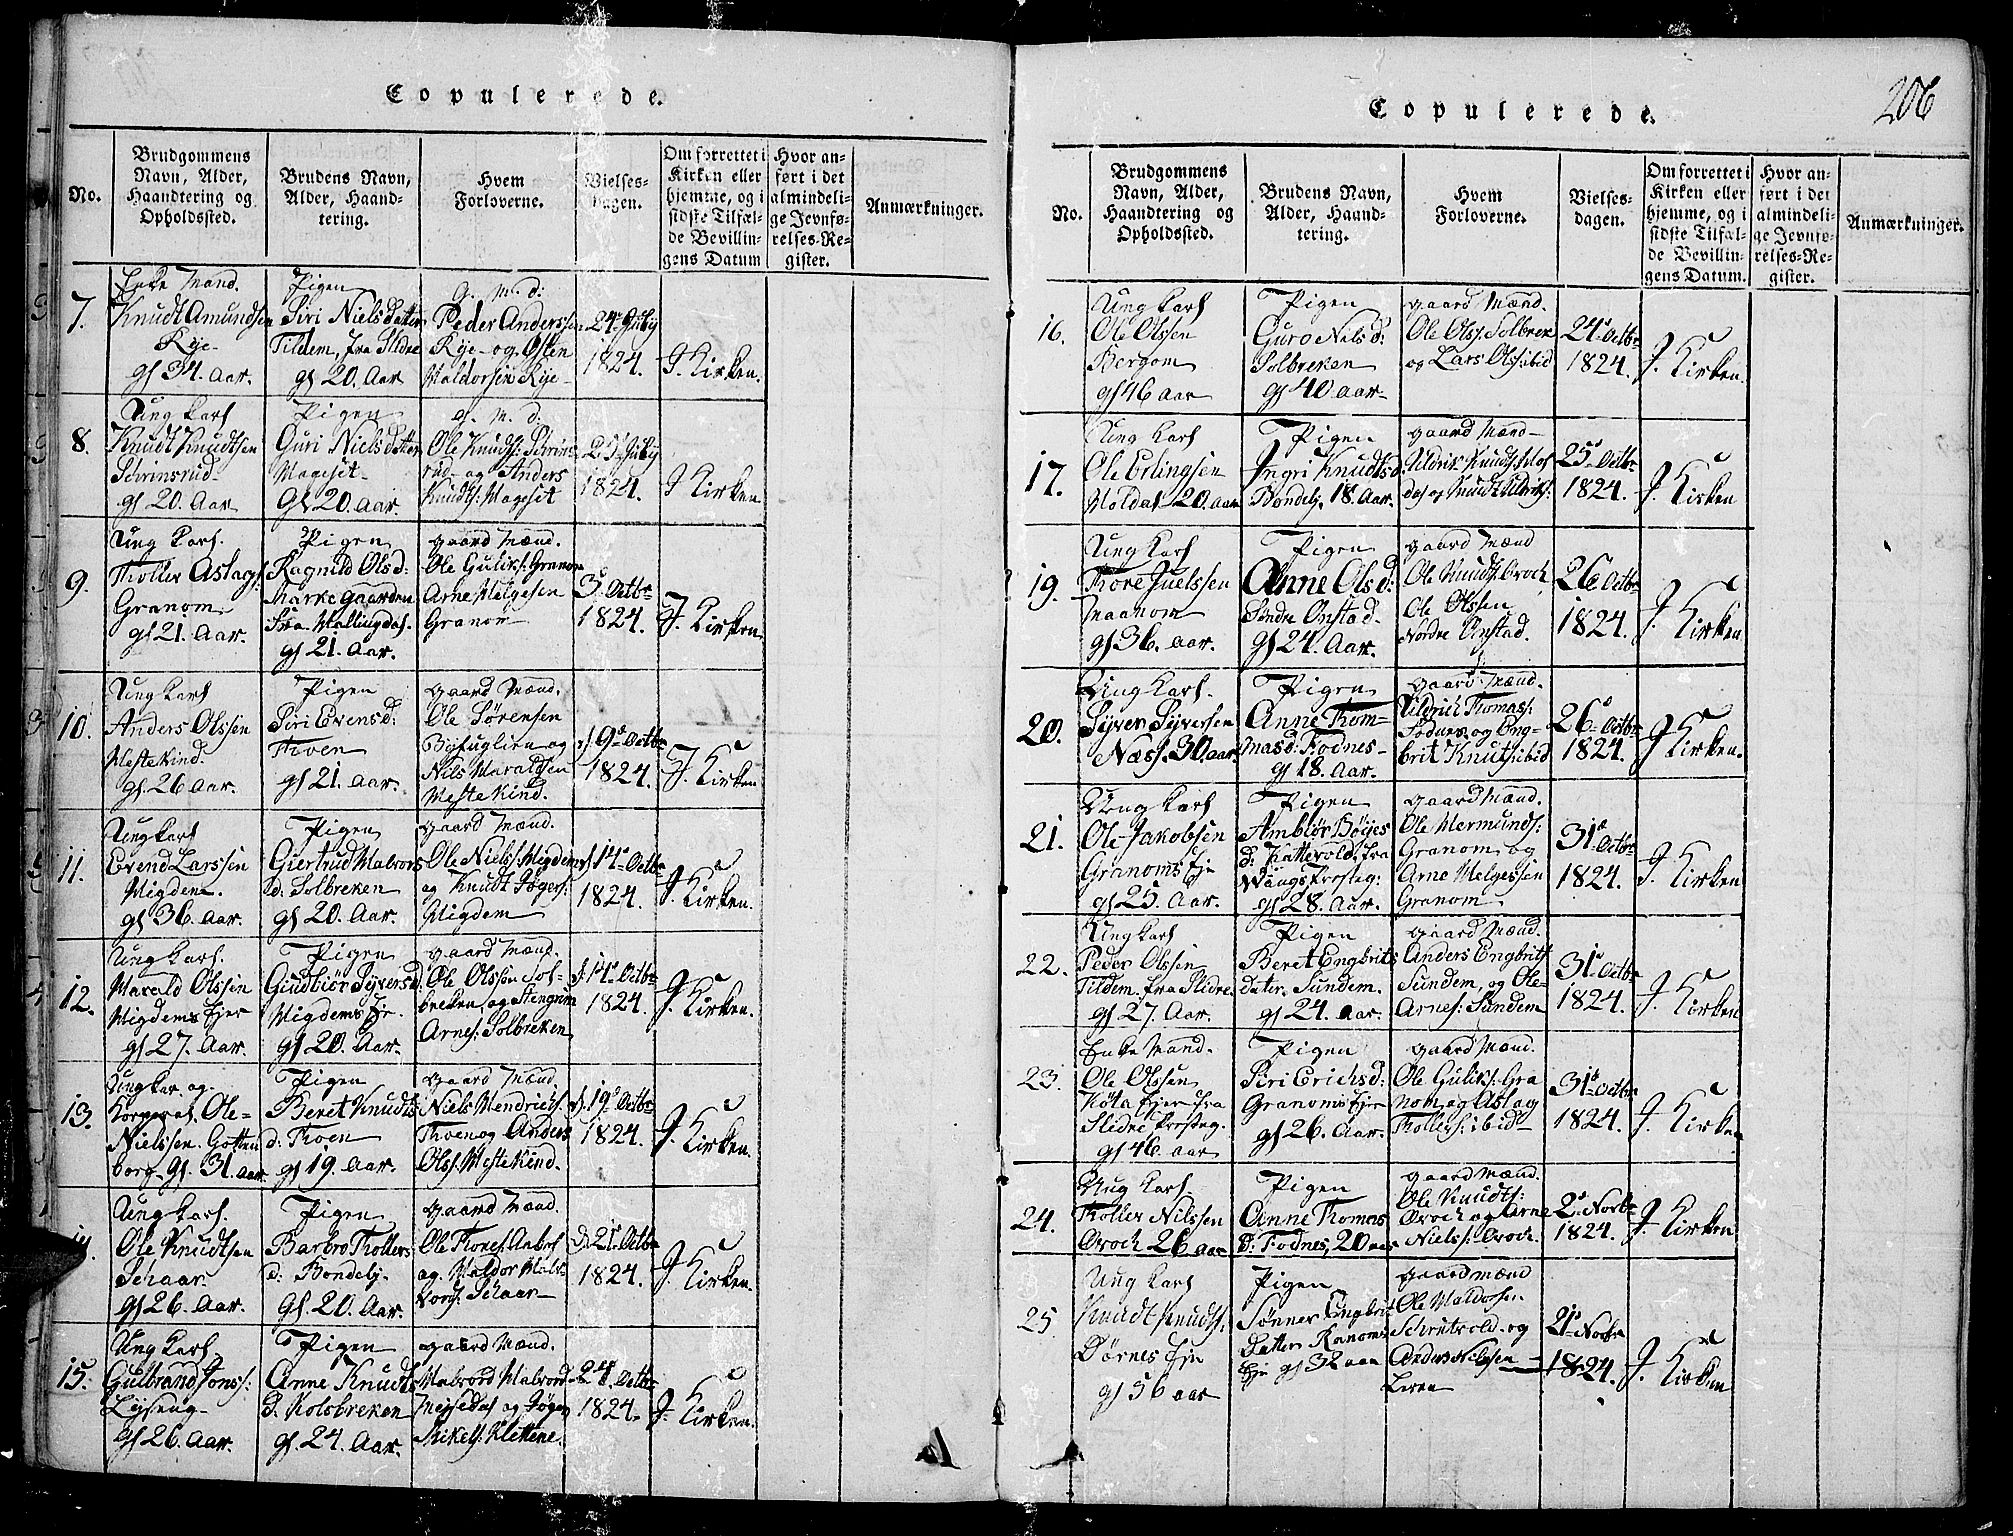 Copulerede.
No.
Brudgommens
Navn, Alder,
Haandtering og
Opholdssted.
Brudens Navn,
Alder, Haand-
tering.
Hvem
Forloverne.
Vielses-
dagen.
Om forrettet i
Kirken eller
hjemme, og i
sidste Tilfæl-
de Bevillin-
gens Datum
Hvor an-
ført i det
almindeli-
ge Jevnfø-
relses-Re-
gister.
Anmærkninger.
7.
Enke Mand.
Knudt Amundsen
Rye
gl 34. Aar.
Pigen
Siri Nielsdatter
Tildem, fra Slidre
gl 20. Aar
g. M. d:
Peder Anderssen
Rye og Osten
Haldorsen Rye
24de July
1824.
I Kirken.
8.
Ung Karl
Knudt Knudtsen
gl 20. Aar
Pigen
Guri Nielsdatter
Mageset
Gl 20. Aar.
g. M. d:
Ole Knuds:
rud og Anders
Knudts: Mageset
25de July
1824.
I Kirken.
9.
Ung Karl.
Tholler Aslags:
Granom
gl 21. Aar.
Pigen
Ragnild Olsd:
gaarden
fra Hallingdal.
gl 21. Aar.
gaard Mænd.
Ole Guliks: Granom
Arne Helgesen
Granom
3de Octbr
1824.
I. Kirken
10.
Ung Karl
Anders Olssen
Hestekind.
gl. 26 aar.
Pigen
Siri Evensd:
Thoen
gl 21. Aar.
gaard Mænd.
Ole Sørensen
Byfuglien og
Nils Haraldsen
Hestekind.
d. 9de Octbr
1824.
I. Kirken
11.
Ung Karl
Evend Larssen
Higden.
gl 36. Aar.
Pigen
Giertrud Halvors
d: Solbreken
gl 20. Aar.
gaard Mænd.
Ole Niels: Higdem
og Knudt Jøgers:
Higdem
d. 14de Octbr
1824.
I. Kirken.
12.
Ung Karl.
Harald Olssen
Higdems Ejer
gl 27. Aar.
Pigen
Gudbiør Syversd
Higdems Ejr.
gl 20. Aar.
gaard Mænd.
Ole Olssen Sol-
breken, og Stengrim
Arnes: Solbreken
d. 14de Octbr
1824.
I. Kirken.
13.
Ung Kar og
Korporal Ole
Nielssen. Gotten
borg gl. 31. aar
Pigen
Beret Knudts
d: Thoen
gl 19. Aar.
gaard Mænd.
Niels Hendrichs.
Thoen og Anders
Ols: Hestekind.
d. 19de Octbr
1824.
I. Kirken.
14.
Ung Karl.
Ole Knudtsen
Schaar.
gl 26. Aar.
Pigen
Barbro Thollers
d: Bondely.
Gl. 20. Aar
gaard Mænd.
Ole Thores:
og Haldor Halv-
Vors: Schaar
d. 21de Octbr
1824.
I. Kirken.
15.
Ung Karl
Gulbrand Jons:
gl 26. Aar.
Pigen
Anne Knudts
D: Kolobreken
gl. 24. Aar.
gaard Mænd.
Halvord Halvord
og Jøger
Mikels: Klettene.
24de Octbr
1824.
I. Kirken.
Copulerede.
206
No.
Brudgommens
Navn, Alder,
Haandtering og
Opholdssted.
Brudens Navn,
Alder, Haand-
tering.
Hvem
Forloverne.
Vielses-
dagen.
Om forrettet i
Kirken eller
hjemme, og i
sidste Tilfæl-
de Bevillin-
gens Datum.
Hvor an-
ført i det
almindeli-
ge Jevnfø-
relses-Re-
gister.
Anmærkninger.
16.
Ung Karl
Ole Olssen
Bergom
gl 46 aar
Pigen
Guro Nils d:
Solbreken
gl 40 aar
gaard Mænd.
Ole Ols: Solbrek
og Lars Ols: ibid
24de Octbr
1824.
I. Kirken.
17.
Ung Karl
Ole Erlingsen
20. aar
Pigen
Ingri Knudtsd:
Bondely. 18. Aar.
gaard Mænd
Tildrik Knudts:
og Knudt Tildriks:
25de Octbr
1824.
I. Kirken
19.
Ung Karl
Thore Juelssen
Haanom
gl 36. aar.
Pigen
Anne Olsd:
Søndre Onstad.
gl 24. Aar.
gaard Mænd
Ole Knudts: Groch
Ole Olssen
Nordre Onstad.
26de Octbr
1824.
I. Kirken.
20.
Ung Karl.
Syver Syversen
Næss. 30 aar.
Pigen
Anne Thom-
masd: Fodnes
gl 18. Aar.
gaard Mænd.
Tildrich Thomas:
Fodnes, og Eng-
brit Knuts: ibid
26de Octbr
1824.
I Kirken.
21.
Ung Karl
Ole Jakobsen
Granoms Eje
gl 25. Aar.
Pigen
Ambiør Bøyes
d: Kattevold, fra
Wangs Prosteg:
gl 28. Aar.
gaard Mænd.
Ole Hermunds:
Granom, og
Arne Helgessen
Granom
31de Octbr
1824.
I. Kirken
22.
Ung Karl
Peder Olssen
Tildem. fra Slidre
gl 27. Aar.
Pigen
Beret Engbrits
dater. Sundem.
gl 24. aar
gaard Mænd.
Anders Engbrits
Sundem, og Ole
Arnes: Sundem
31de Octbr
1824.
I. Kirken
23.
Enke Mand.
Ole Olssen
Køta Ejer fra
Slidre Prosteg.
gl 46. aar
Pigen
Siri Erichsd:
Granoms Ejer
gl 26. Aar.
gaard Mænd.
Ole Guliks: Gra
nom, og Aslag
Thollers: ibid
31de Octbr
1824.
I. Kirken
24.
Ung Karl
Tholler Nilssen
Groch 26 aar
Pigen
Anne Thomas
D: Fodnes, 20 aar
gaard Mænd.
Ole Knudts:
Groch og Arne
Niels: Groch.
2de Novbr
1824.
I. Kirken
25
Ung Karl
Knudt Knuds:
Dørnes Eje
gl 56 aar
Pigen
Sønner Engbrit
Datter Ranoms
Eje gl 32 aar
gaardmænd
Ole Haldorsen
og
Anders Nilssen
Leren
21de Novbr
1824.
I. Kirken